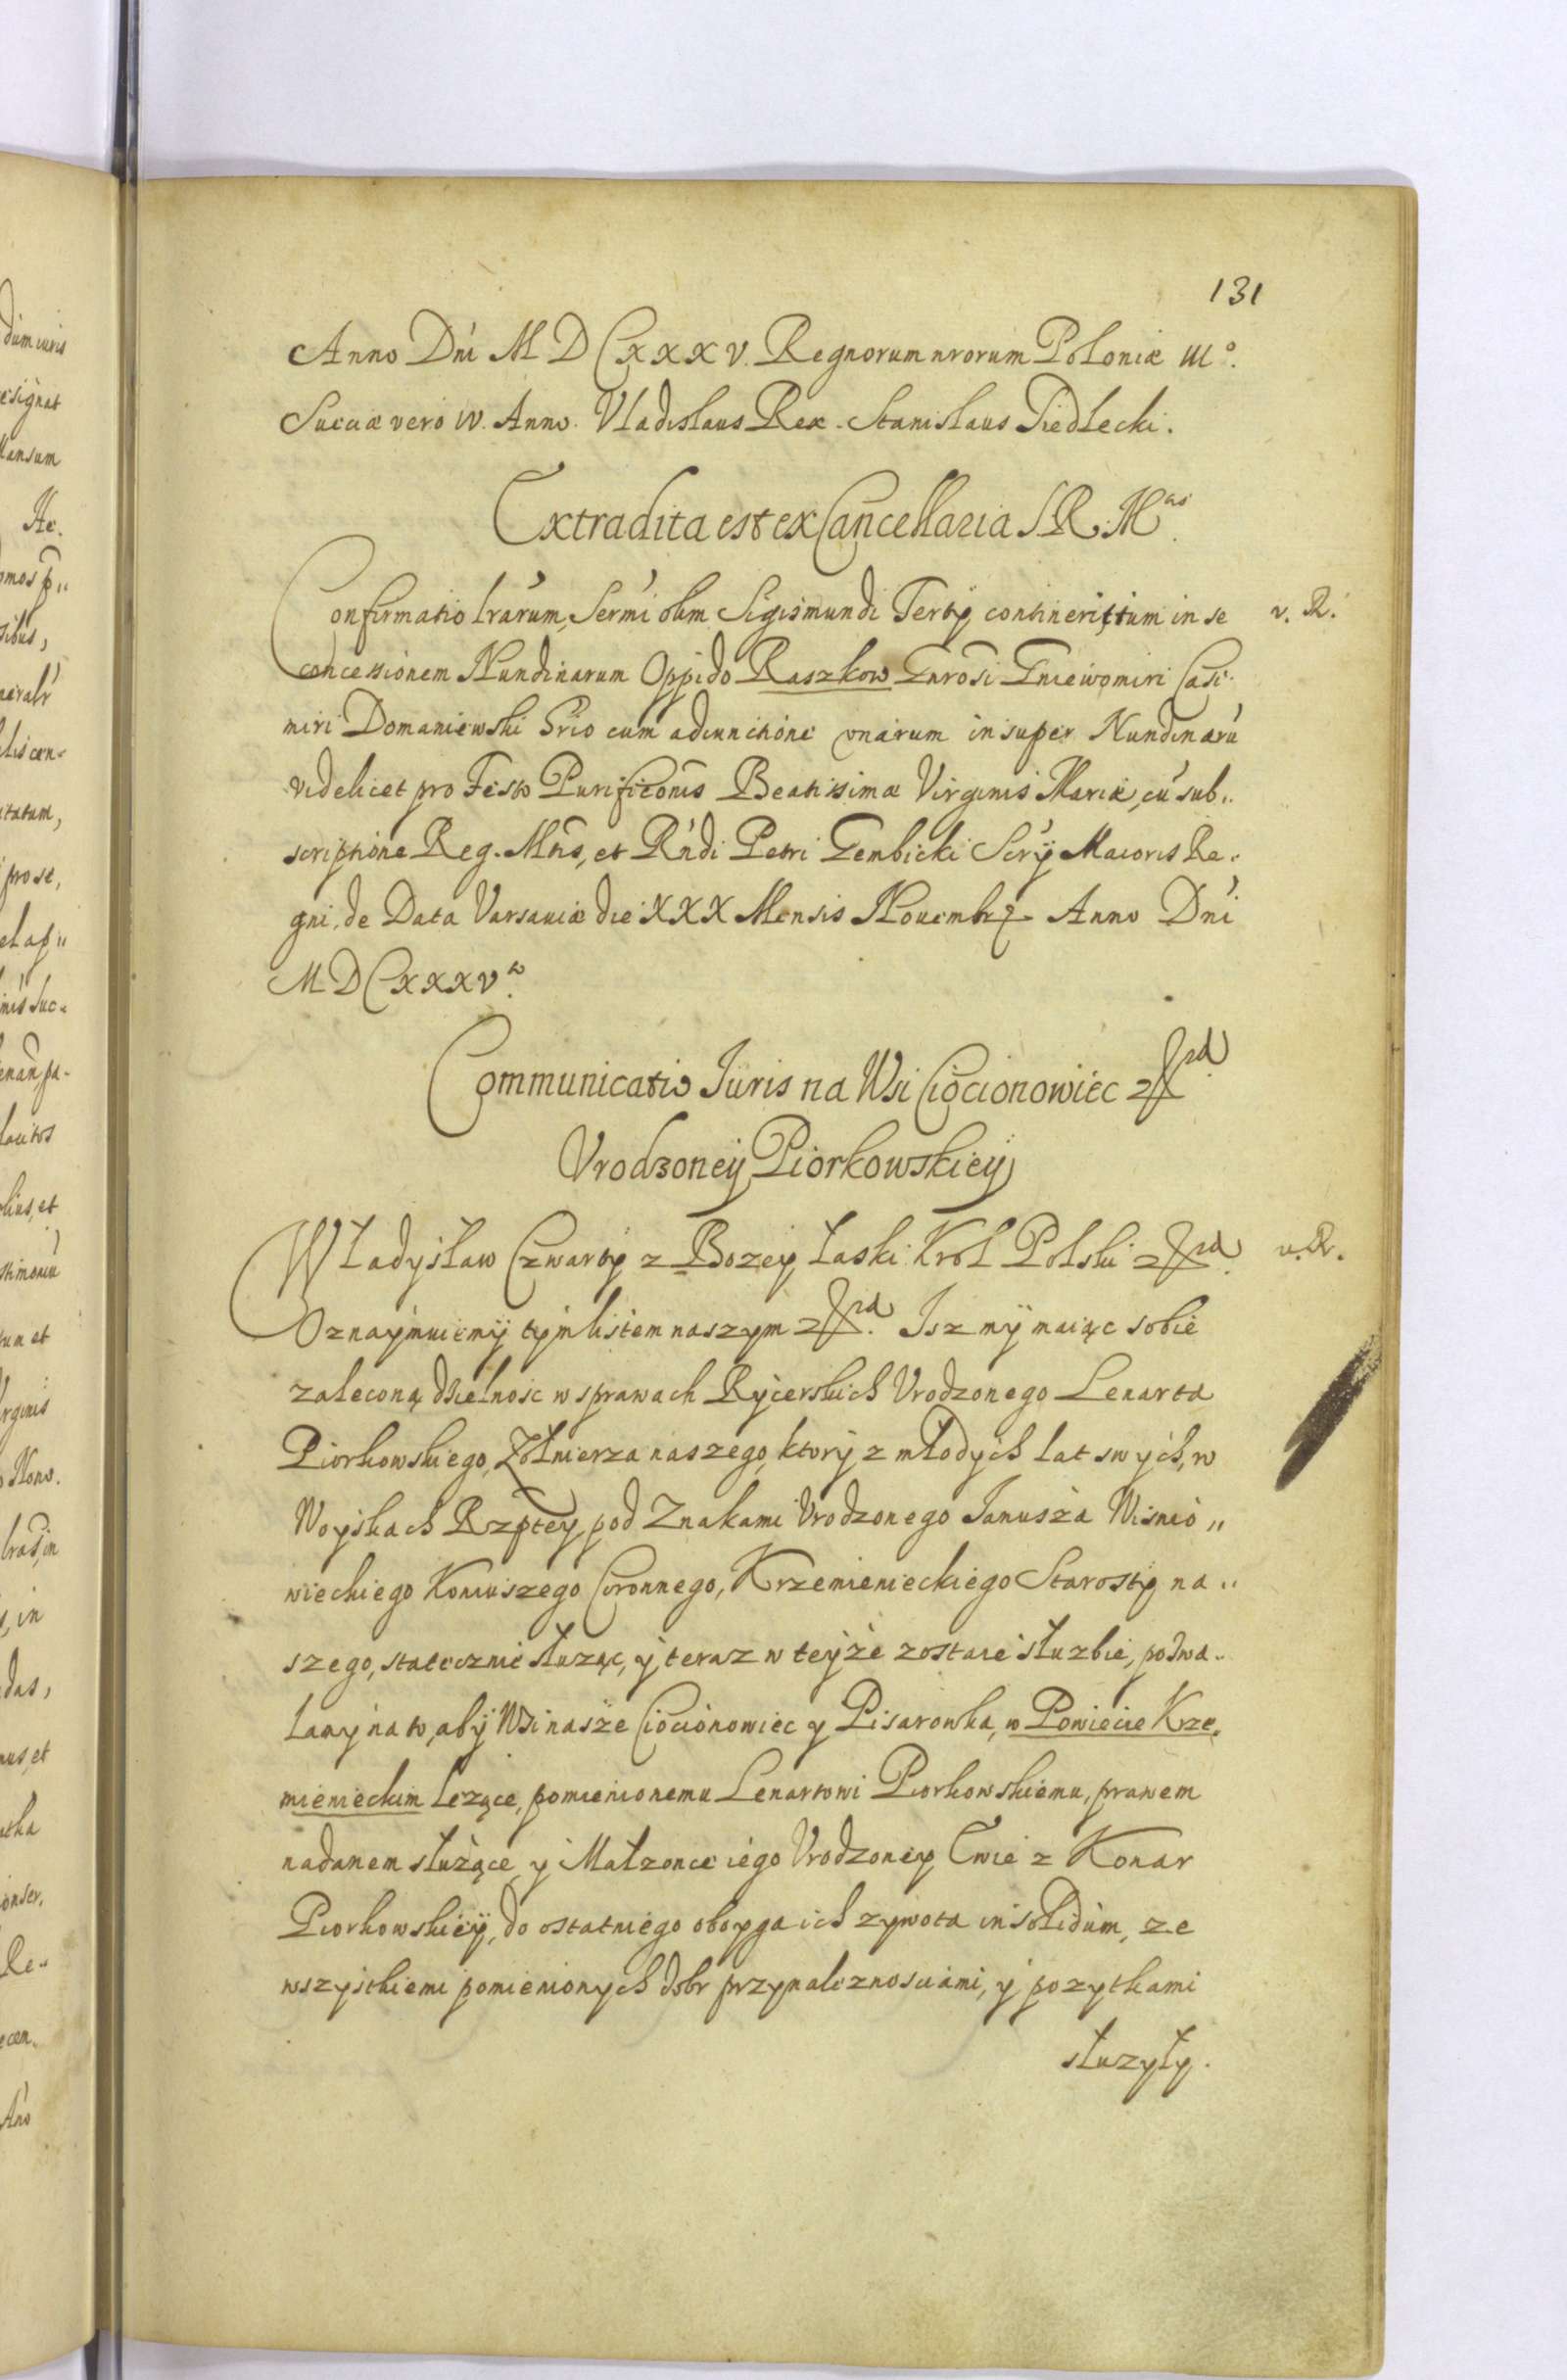 131
Anno Dni M D CXXXV. Regnorum nrorum Poloniæ IIIº.
Sueciæ vero IV. Anno. Vladislaus Rex. Stanislaus Siedlecki.
Extradita est ex Cancellaria S. R. Mtis.
Confirmatio lrarum, Sermi olim Sigismundi Tertÿ continentium in se
v. R.
concessionem Nundinarum Oppido Raszkow Gnrosi Gniewomiri Casi-
miri Domaniewski Srio cum adiunctione unarum insuper Nundinaru
videlicet pro Festo Purificonis Beatissimæ Virginis Mariæ, cu sub„
scriptione Reg. Mtis, et Rndi Petri Gembicki Scrÿ Maioris Re„
gni, de Data Varsaviæ die XXX Mensis Novembr Anno Dni
M D CXXXVto.
Communicatio Iuris na Wsi Ciocionowiec &
Vrodzoneÿ Piorkowskieÿ
Władysław Czwarty z Bozey Łaski Krol Polski &
v. R.
Oznaÿmuiemÿ tÿm listem naszym & Isz mÿ maiąc sobie
zaleconą dzielnosc w sprawach Rÿcerskich Vrodzonego Lenarta
Piorkowskiego, Zołnierza naszego, ktorÿ z młodÿch lat swÿch, w
Woyskach Rzptey, pod Znakami Vrodzonego Janusza Wisnio„
wieckiego Koniuszego Coronnego, Krzemienieckiego Starosty na„
szego, statecznie słuząc, ÿ teraz w teÿze zostaie słuzbie, pozwa„
lamÿ na to, abÿ Wsi nasze Ciocionowiec y Pisarowka, w Powiecie Krze„
mienieckim lezące, pomienionemu Lenartowi Piorkowskiemu, prawem
nadanem słuzące, ÿ Małzonce iego Vrodzoney Ewie z Konar
Piorkowskieÿ, do ostatniego oboyga ich zywota in solidum, ze
wszÿstkiemi pomienionych dobr przynaleznosciami, ÿ pozytkami
słuzyły.